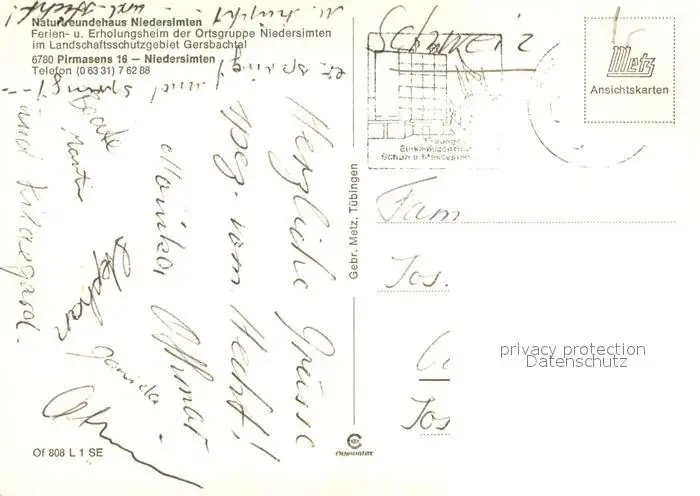 Naturfreundehaus Niedersimten
Ferien- u. Erholungsheim der Ortsgruppe Niedersimten
im Landschaftsschutzgebiet Gersbachtal
6780 Pirmasens 16 — Niedersimten
Telefon (0 63 31) 7 62 88
Herzliche Grüsse
vom Hecht!
Monika, Othmar
Martin
Stephan
Daniela
und Hildegard.
Of 808 L 1 SE
Gebr. Metz, Tübingen
Schweiz
Metz
Ansichtskarten
Fam
Jos.
Jos
privacy protection
Datenschutz